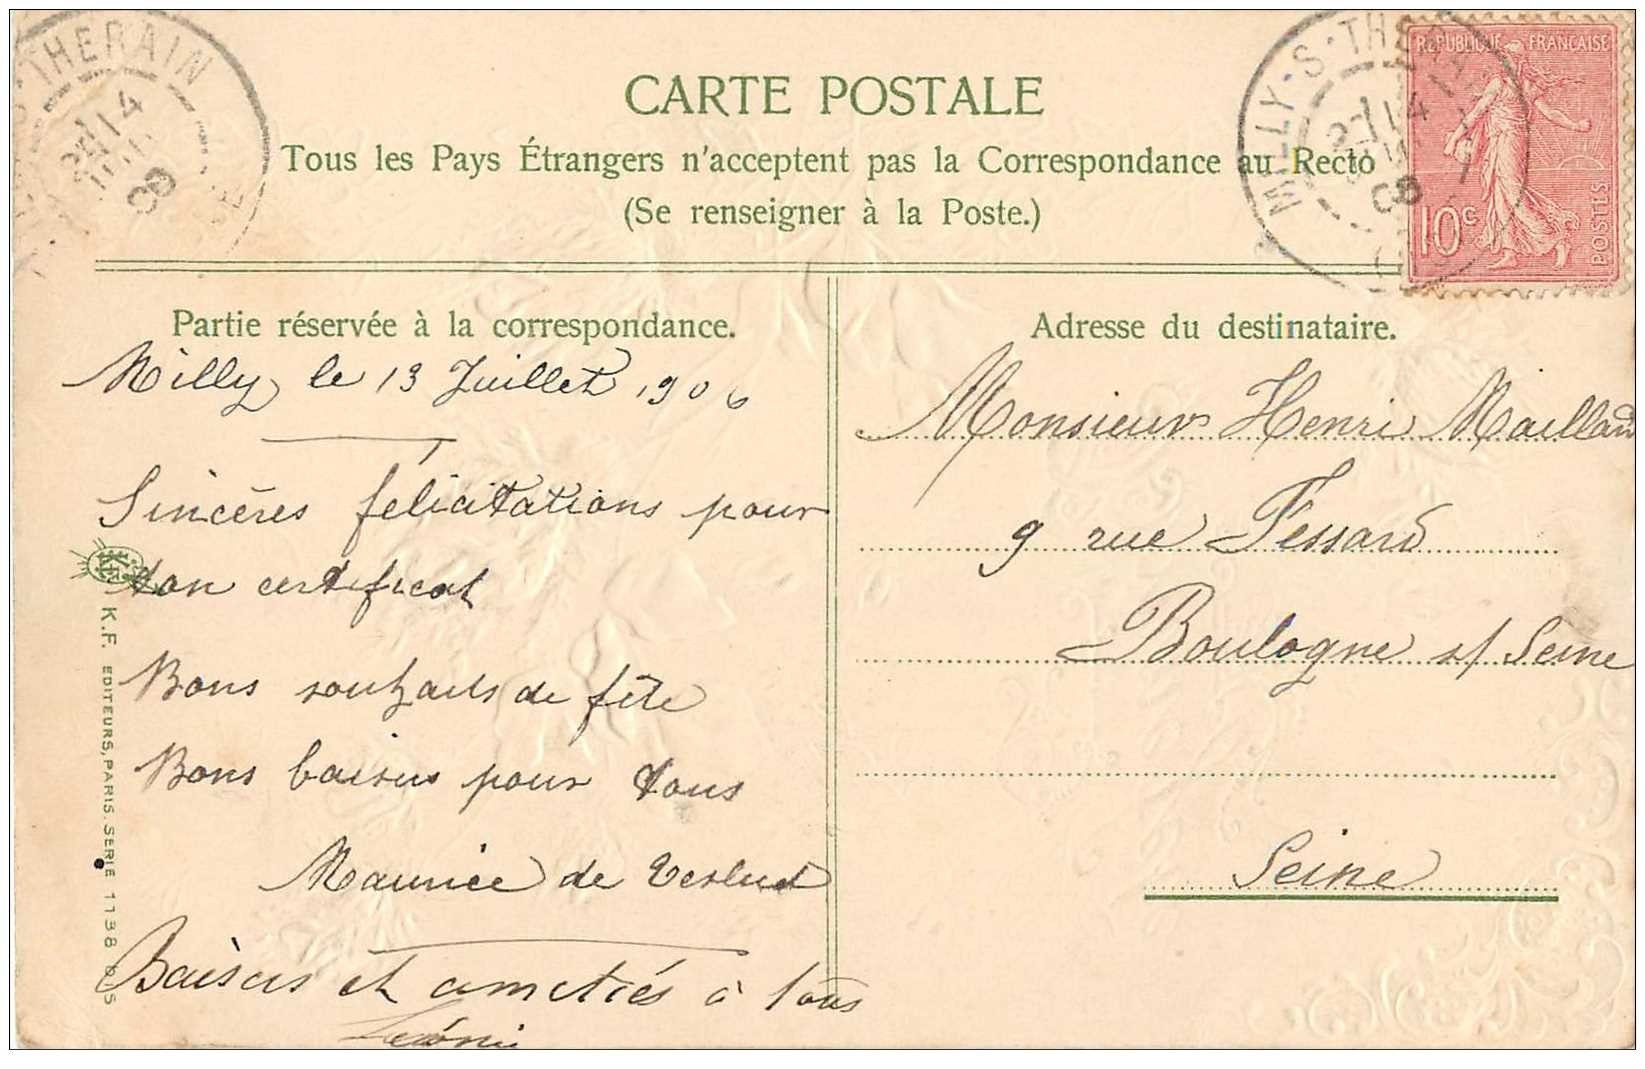 CARTE POSTALE
Tous les Pays Étrangers n'acceptent pas la Correspondance au Recto
(Se renseigner à la Poste.)
THERAIN
14
08
MILLY-S-THERAIN
14
08
RÉPUBLIQUE FRANÇAISE
10c
POSTES
Partie réservée à la correspondance.
Milly le 13 Juillet 1906
Sincères félicitations pour
ton certificat
Bons souhaits de fête
Bons baisers pour tous
Maurice de
Baisers et amitiés à tous
Léonie
Adresse du destinataire.
Monsieur Henri Maillard
9 rue Fessard
Boulogne s/ Seine
Seine
K.F. EDITEURS, PARIS. SERIE 1138